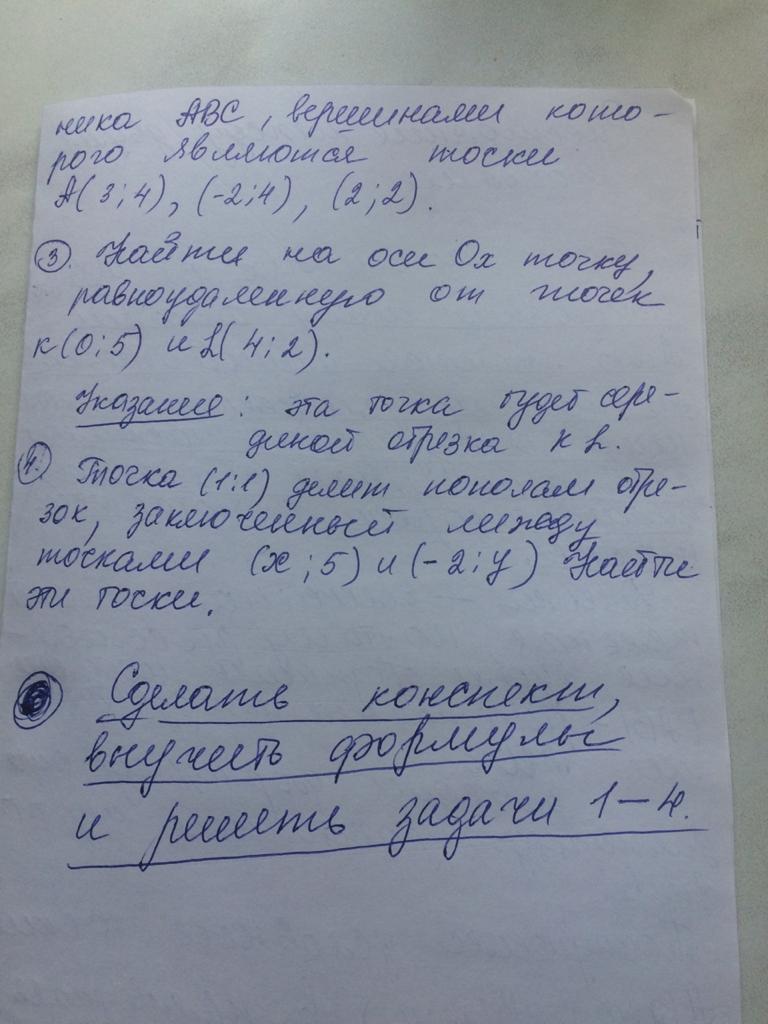 ника ABC, вершинами кото-
рого являются тоски
A(3;4), (-2;4), (2;2).
3. Найти на оси Ox точку,
равноудаленную от точек
K(0;5) и L(4;2).
Указание: эта точка будет сере-
диной отрезка KL.
4. Точка (1;1) делит пополам отре-
зок, заключенный между
тосками (x;5) и (-2;y) Найти
эти тоски.
Сделать конспект,
выучить формулы
и решить задачи 1-4.